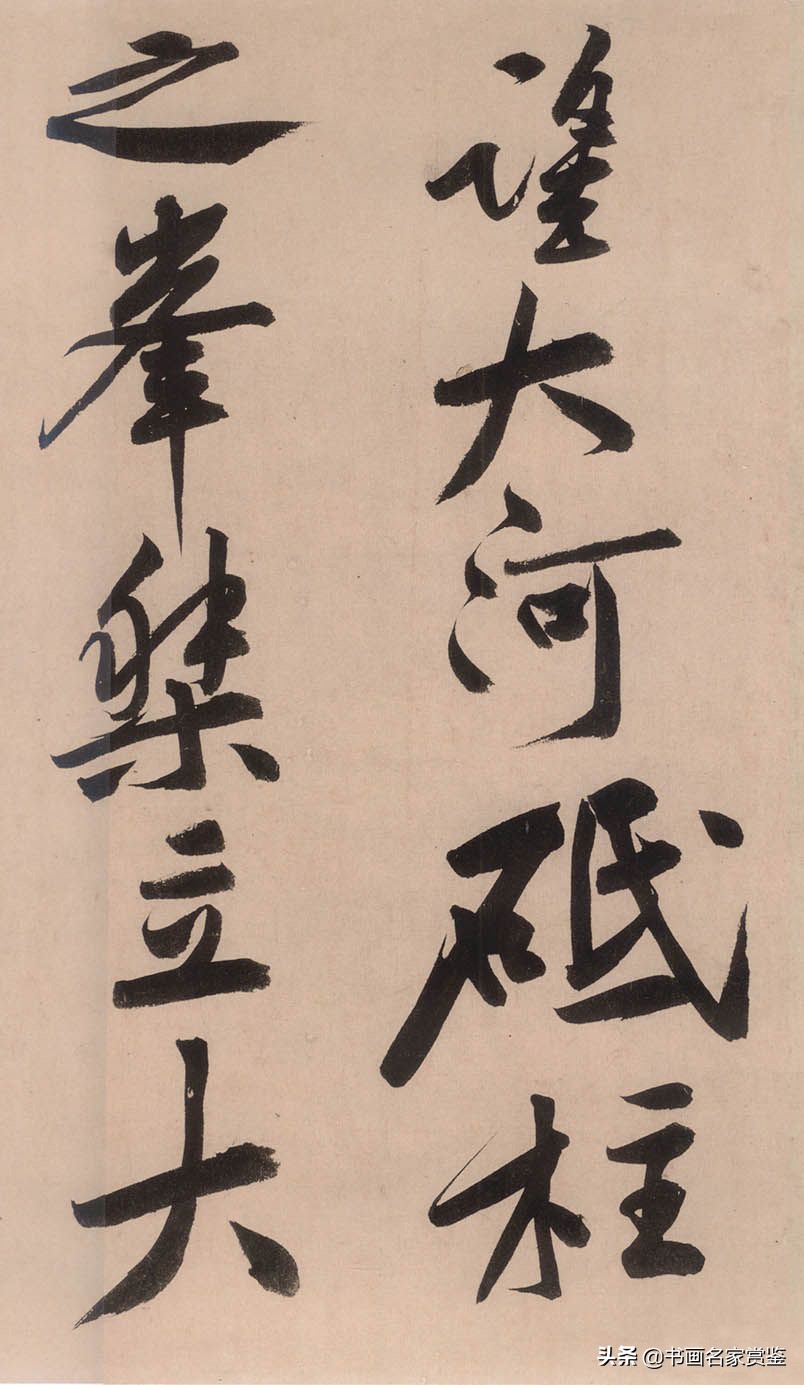 望大河砥柱
之峯桀立大
头条 @书画名家赏鉴